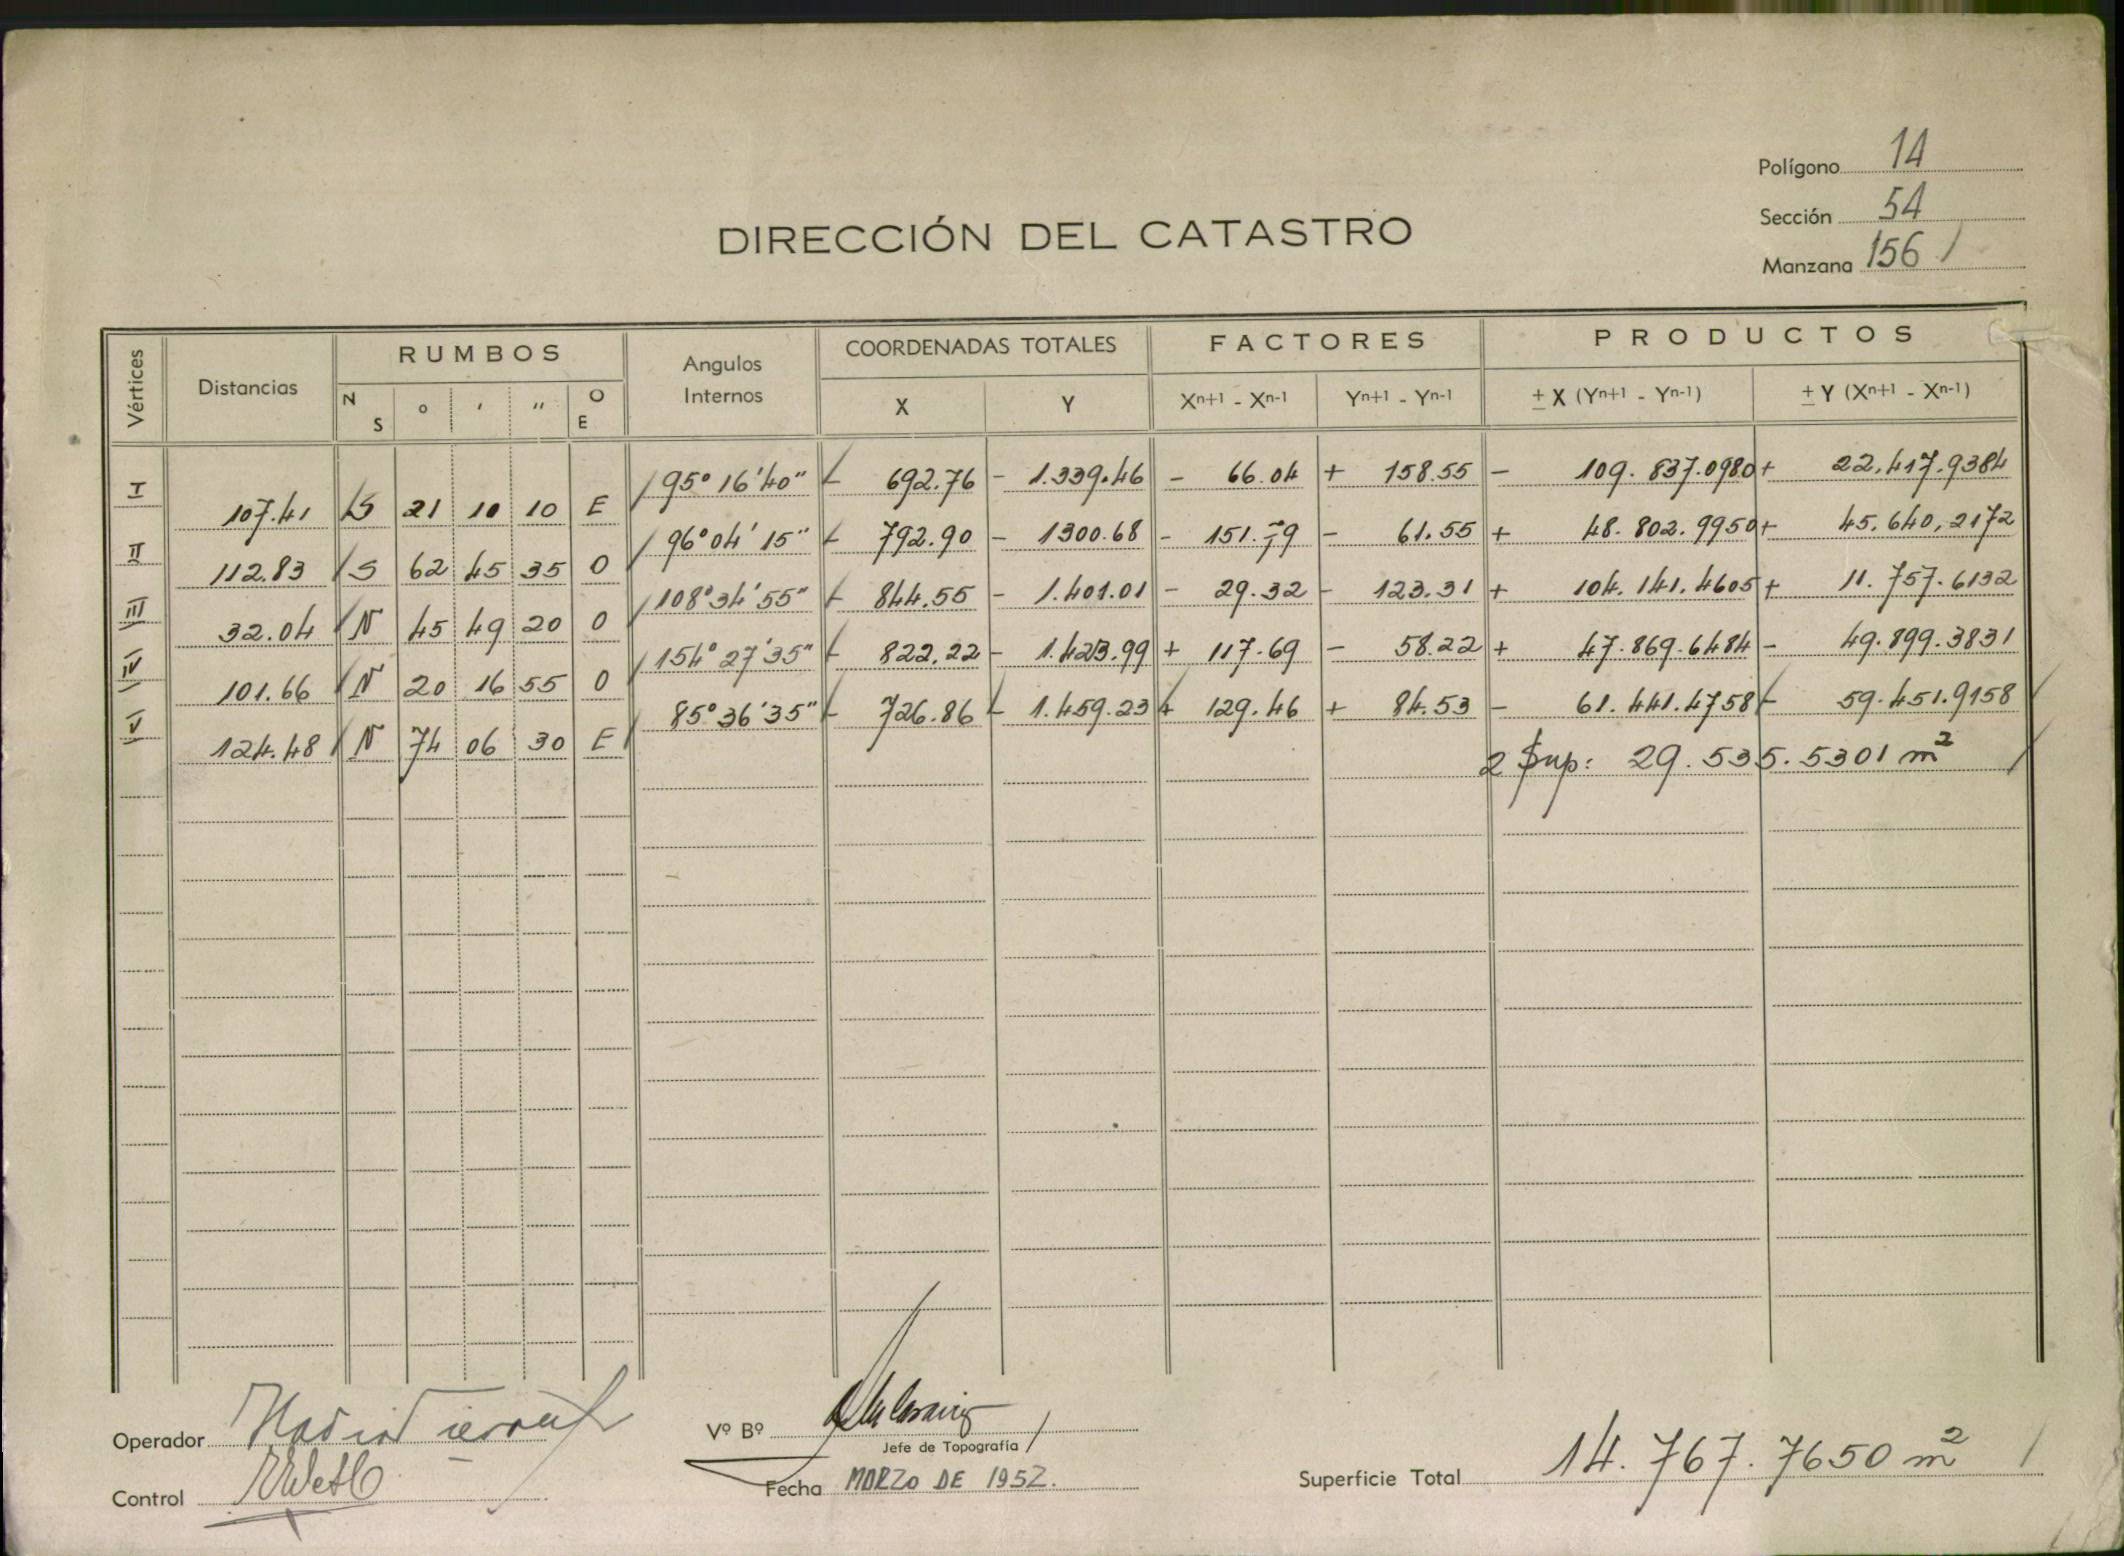 Polígono 14
Sección 54
Manzana 156 /
DIRECCIÓN DEL CATASTRO
Vértices Distancias RUMBOS Angulos Internos COORDENADAS TOTALES FACTORES PRODUCTOS
N S o ' " O E X Y Xn+1 - Xn-1 Yn+1 - Yn-1 ± X (Yn+1 - Yn-1) ± Y (Xn+1 - Xn-1)
I 95° 16' 40" - 692.76 - 1.339.46 - 66.04 + 158.55 - 109.837.0980 + 22.417.9384
107.41 S 21 10 10 E
II 96° 04' 15" - 792.90 - 1300.68 - 151.79 - 61.55 + 48.802.9950 + 45.640,2172
112.83 S 62 45 35 O
III 108° 34' 55" - 844.55 - 1.401.01 - 29.32 - 123.31 + 104.141.4605 + 11.757.6132
32.04 N 45 49 20 O
IV 154° 27' 35" - 822.22 - 1.423.99 + 117.69 - 58.22 + 47.869.6484 - 49.899.3831
101.66 N 20 16 55 O
V 85° 36' 35" - 726.86 - 1.459.23 + 129.46 + 84.53 - 61.441.4758 - 59.451.9158
124.48 N 74 06 30 E
2 Sup: 29.535.5301 m²
Operador
Control
Vº Bº
Jefe de Topografía
Fecha MARZO DE 1952.
Superficie Total 14.767.7650 m² /